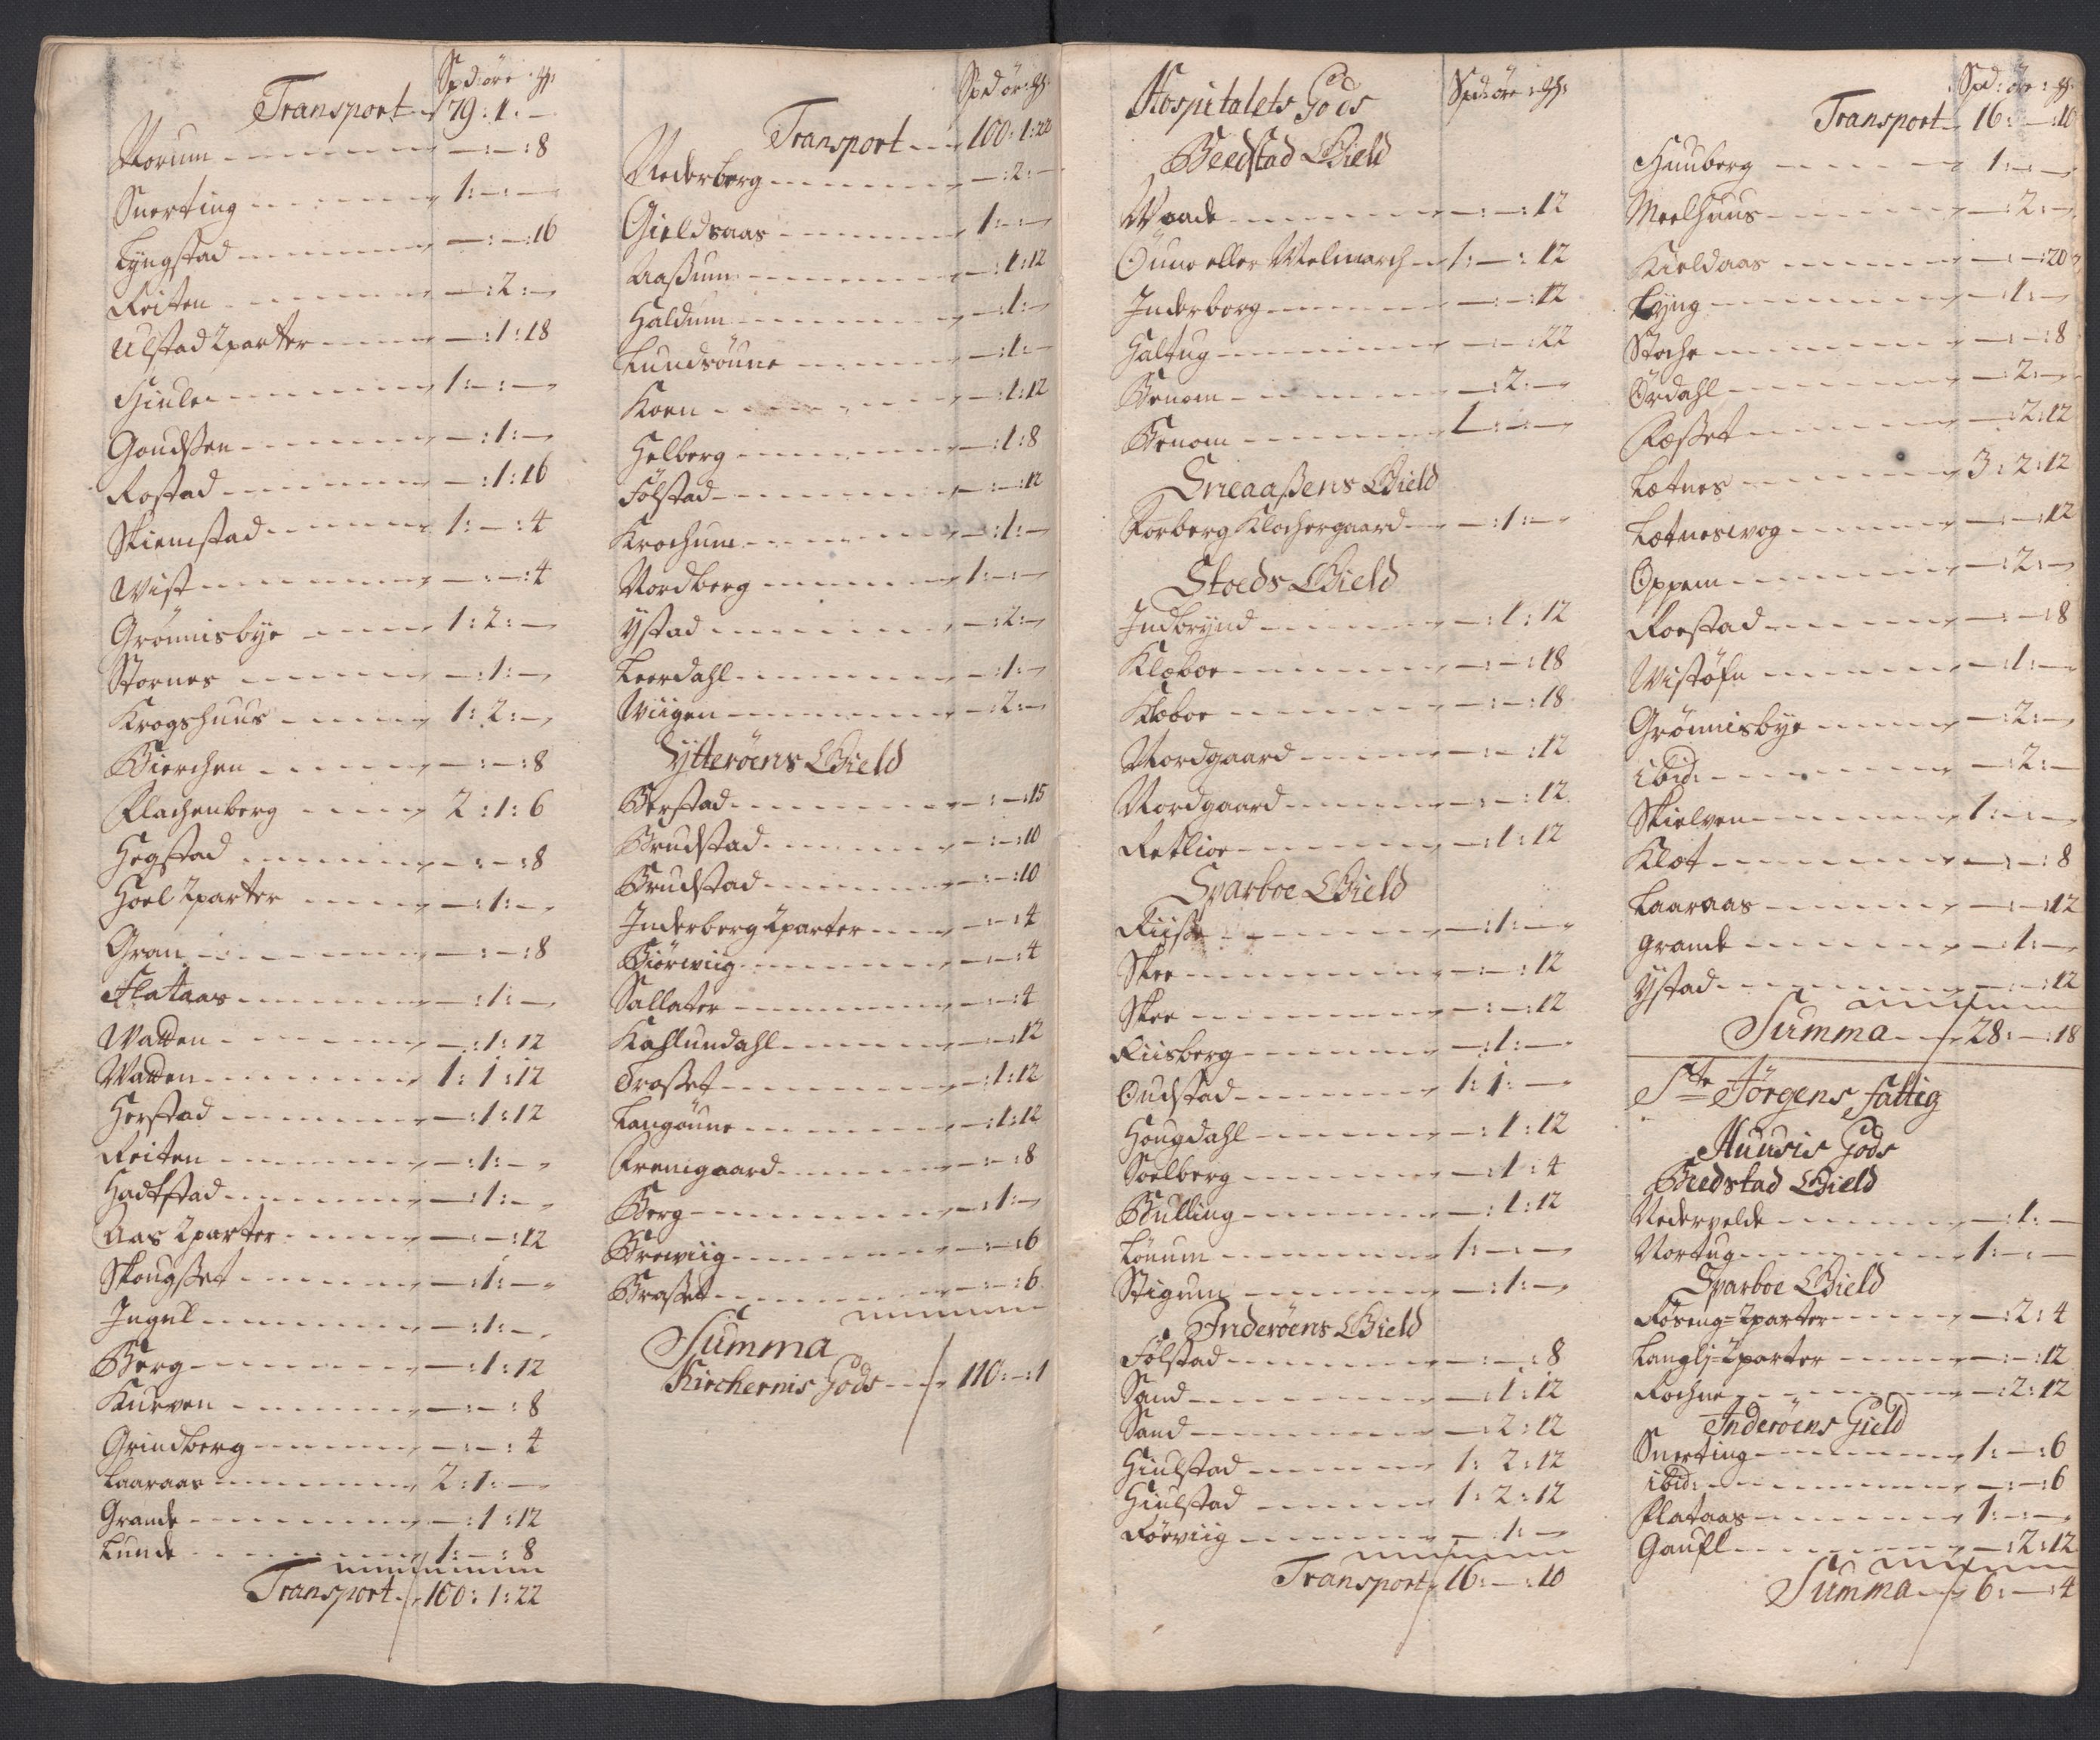 Spd: öre : ₰:
Transport - 79 : 1 : -
Norum - : - : 8
Snerting 1 : - : -
Lyngstad - : - : 16
Reiten - : 2 : -
Ulstad 2 parter - : 1 : 18
Hiule 1 : - : -
Goudßen - : 1 : -
Rostad - : 1 : 16
Skiemstad 1 : - : 4
Wist - : - : 4
Grönnisbye 1 : 2 : -
Stornes - : 1 : -
Krogshuus 1 : 2 : -
Bierchen - : - : 8
Flachenberg 2 : 1 : 6
Hegstad - : - : 8
Hoel 2 parter - : 1 : -
Gran - : - : 8
Flataas - : 1 : -
Watten - : 1 : 12
Watten 1 : 1 : 12
Herstad - : 1 : 12
Reiten - : 1 : -
Hadtstad - : 1 : -
Aas 2 parter - : - : 12
Skougßet - : 1 : -
Ingul - : 1 : -
Berg - : 1 : 12
Kurven - : - : 8
Grindberg - : - : 4
Laaraas 2 : 1 : -
Grande - : 1 : 12
Lunde 1 : - : 8
Transport 100 : 1 : 22
Spd öre ₰:
Transport 100 : 1 : 22
Nederberg - : 2 : -
Gieldsaas 1 : - : -
Aaßum - : 1 : 12
Haldum - : 1 : -
Lundsöune - : 1 : -
Koen - : 1 : 12
Helberg - : 1 : 8
Fölstad - : - : 12
Krochum - : 1 : -
Nordberg 1 : - : -
Ystad - : 2 : -
Leerdahl - : 1 : -
Wiigen - : 2 : -
Ytteröens Gield
Berstad - : - : 15
Brudstad - : - : 10
Brudstad - : - : 10
Inderberg 2 parter - : - : 4
Biörwiig - : - : 4
Sallater - : - : 4
Kahlundahl - : - : 12
Troßet - : 1 : 12
Langöune - : 1 : 12
Fremgaard - : - : 8
Berg - : 1 : -
Brewiig - : - : 6
Braßet - : - : 6
Summa
Kirchernis Gods 110 : - : 1
Hospitalets Gods Spd: öre : ₰:
Beedstad Gield
Waade - : - : 12
Öune eller Welmarch 1 : - : 12
Inderberg - : - : 12
Haltug - : - : 22
Benom - : 2 : -
Benom 1 : - : -
Sneaaßens Gield
Forberg Klochergaard - : 1 : -
Stoeds Gield
Indbrynd - : 1 : 12
Klæboe - : - : 18
Klæboe - : - : 18
Nordgaard - : - : 12
Nordgaard - : - : 12
Retlioe - : 1 : 12
Sparboe Gield
Riiße - : 1 : -
Skee - : - : 12
Skee - : - : 12
Riisberg - : 1 : -
Oudstad 1 : 1 : -
Hougdahl - : 1 : 12
Soelberg - : 1 : 4
Bulling - : 1 : 12
Lönum 1 : - : -
Stigum - : 1 : -
Inderöens Gield
Fölstad - : - : 8
Sand - : 1 : 12
Sand - : 2 : 12
Hiulstad 1 : 2 : 12
Hiulstad 1 : 2 : 12
Röeviig - : 1 : -
Transport 16 : - : 10
Spd: öre : ₰:
Transport 16 : - : 10
Huuberg 1 : - : -
Meelhuus - : 2 : -
Kieldaas - : - : 20
Lyng - : 1 : -
Stoche - : - : 8
Ördahl - : 2 : -
Fæßet - : 2 : 12
Letnes 3 : 2 : 12
Letneswog - : - : 12
Oppem - : 2 : -
Roestad - : - : 8
Wistöfn - : 1 : -
Grönnisbye - : 2 : -
ibid: - : 2 : -
Skielven 1 : - : -
Klæt - : - : 8
Laaraas - : - : 12
Grande - : 1 : -
Ystad - : - : 12
Summa 28 : - : 18
Ste Jörgens fattig
Huusis Gods
Beedstad Gield
Nedervelde - : 1 : -
Nortug 1 : - : -
Sparboe Gield
Röseng = 2 parter - : 2 : 4
Langlj = 2 parter - : - : 12
Rochne - : 2 : 12
Inderöens Gield
Snerting 1 : - : 6
ibid: - : - : 6
Flataas 1 : - : -
Gaufl - : 2 : 12
Summa 6 : - : 4